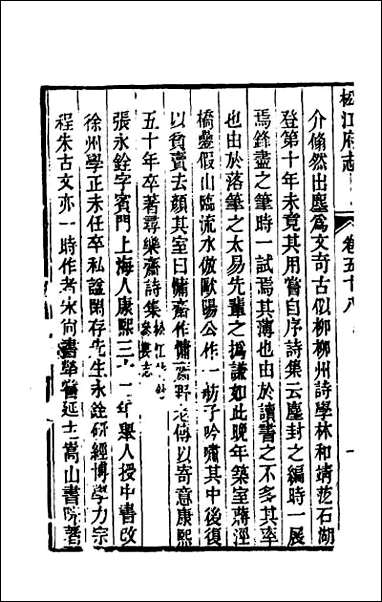 松江府志 卷五十八
介翛然出塵爲文奇古似柳柳州詩學林和靖范石湖
登第十年未竟其用嘗自序詩集云塵封之編時一展
焉鋒盡之筆時一試焉其薄也由於讀書之不多其率
也由於落筆之太易先輩之撝謙如此晚年築室蔣涇
橋壘假山臨流水倣歐陽公作一舫子吟嘯其中後復
以貧賣去顏其室曰傭齋作傭齋野老傳以寄意康熙
五十年卒著尋樂齋詩集 婁縣志
張永銓字賓門上海人康熙三十一年舉人授中書改
徐州學正未任卒私諡閑存先生永銓研經博學力宗
程朱古文亦一時作者宋尚書犖嘗延主嵩山書院著